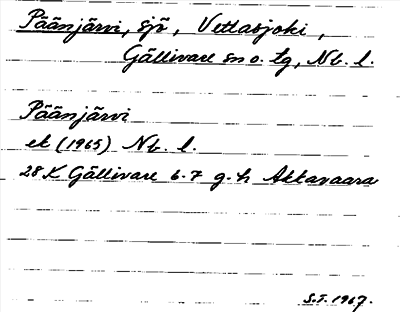 Päänjärvi, sjö, Vettasjoki,
Gällivare sn o. tg, Nb. l.
Päänjärvi
ek (1965) Nb. l.
28 K Gällivare 6-7 g-h Akkavaara
S.I. 1967.